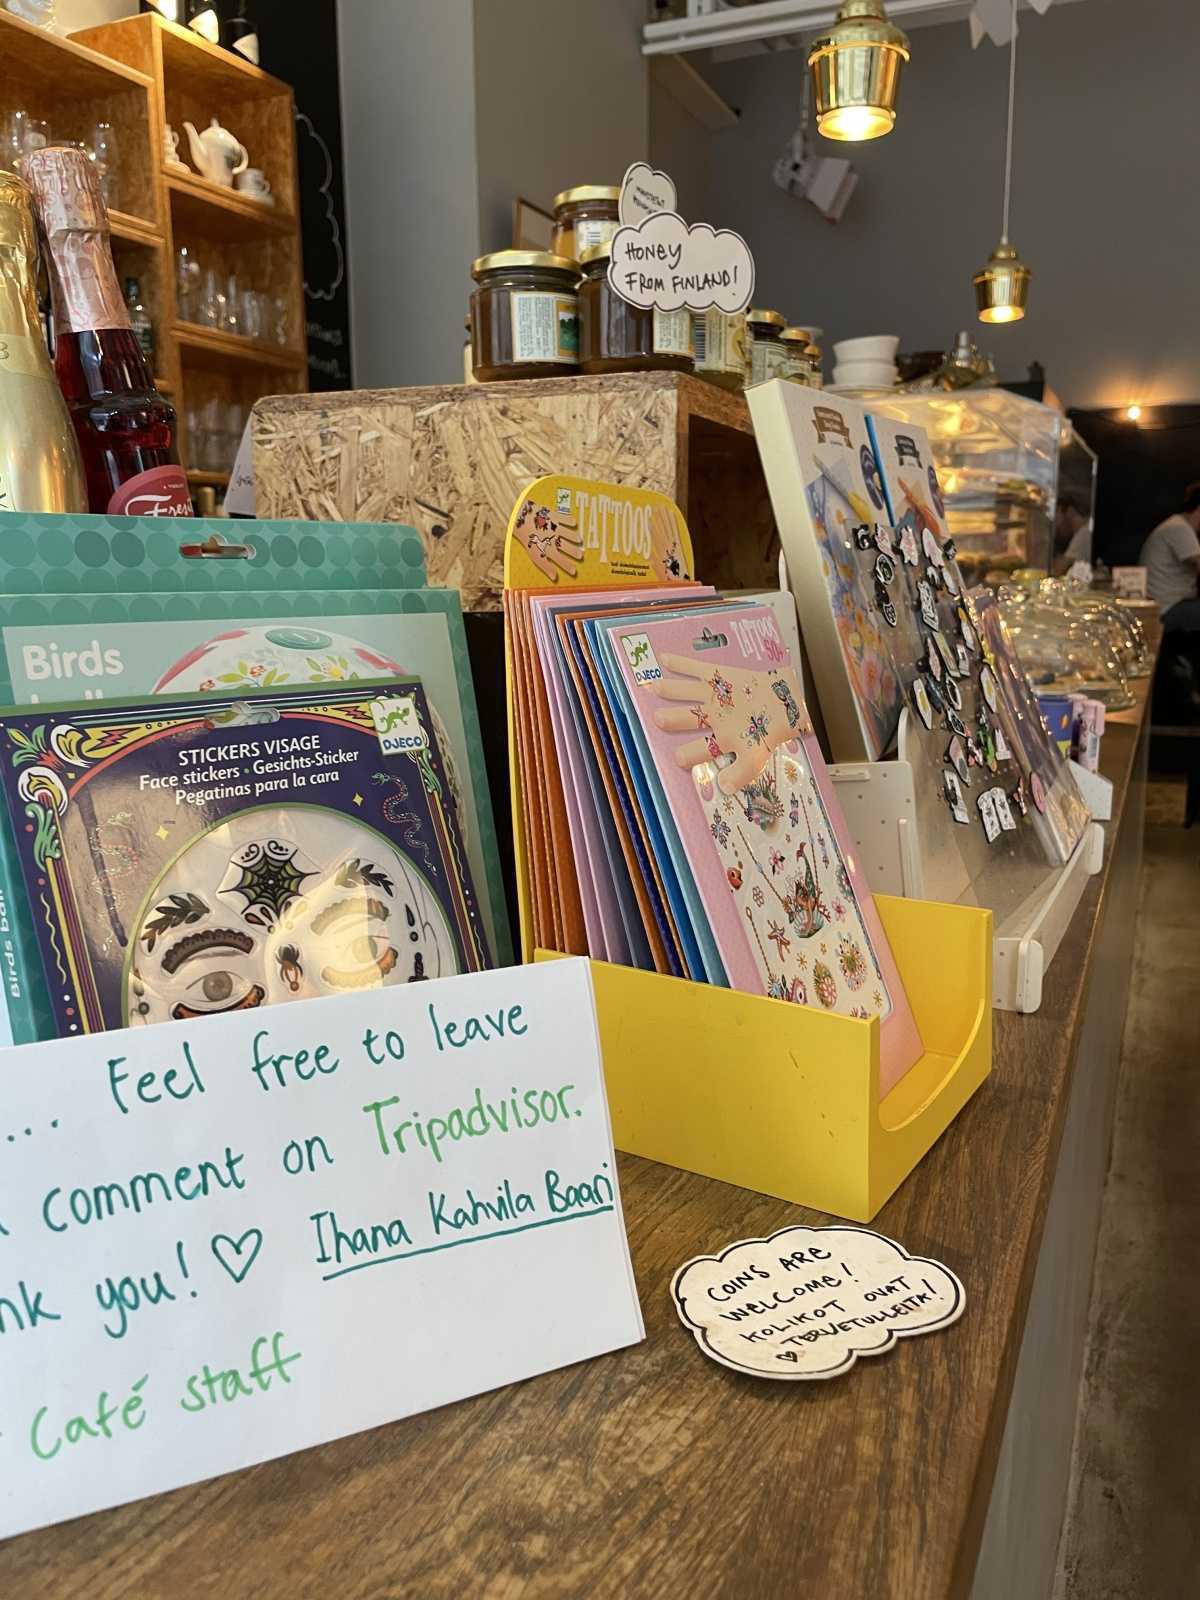 HONEY
FROM FINLAND!
TATTOOS
DJECO
Birds
TATTOOS
50+
DJECO
STICKERS VISAGE
Face stickers • Gesichts-Sticker
Pegatinas para la cara
DJECO
Birds ball
... Feel free to leave
comment on Tripadvisor.
nk you! ♡ Ihana Kahvila Baari
Café staff
COINS ARE
WELCOME!
KOLIKOT OVAT
TERVETULLEITA!
♡